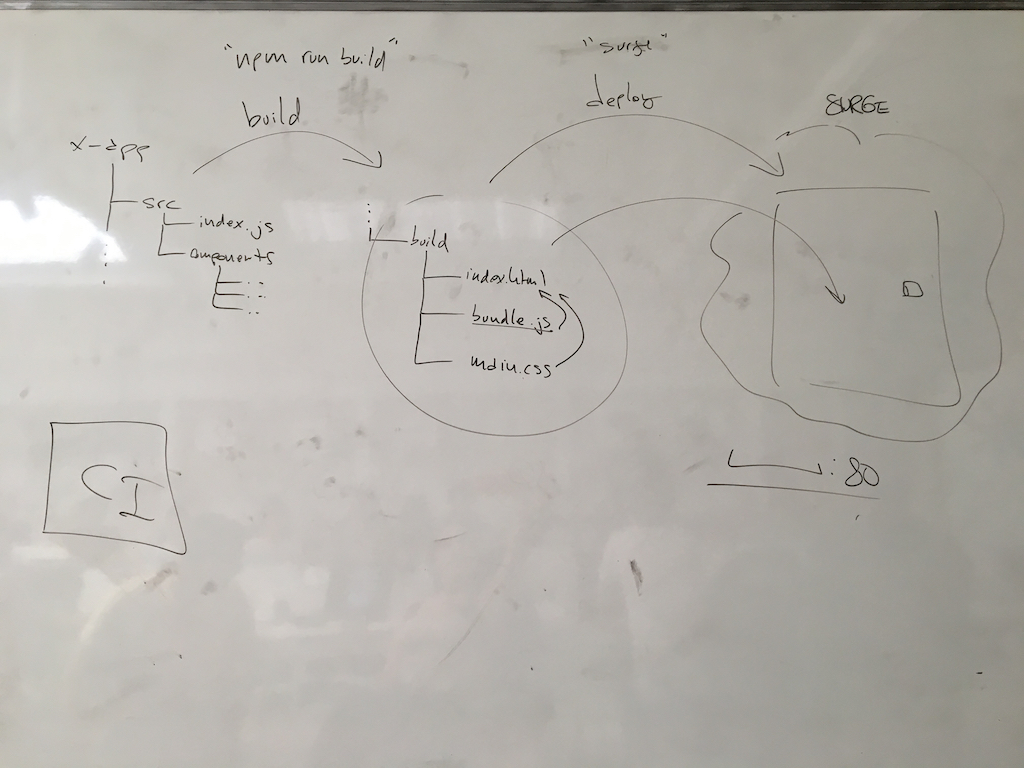 "npm run build"
build
"surge"
deploy
SURGE
x-app
src
index.js
components
build
index.html
bundle.js
main.css
CI
:80